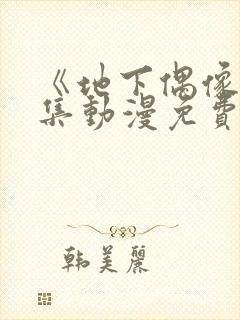 《地下偶像
集动漫免費
韩美麗